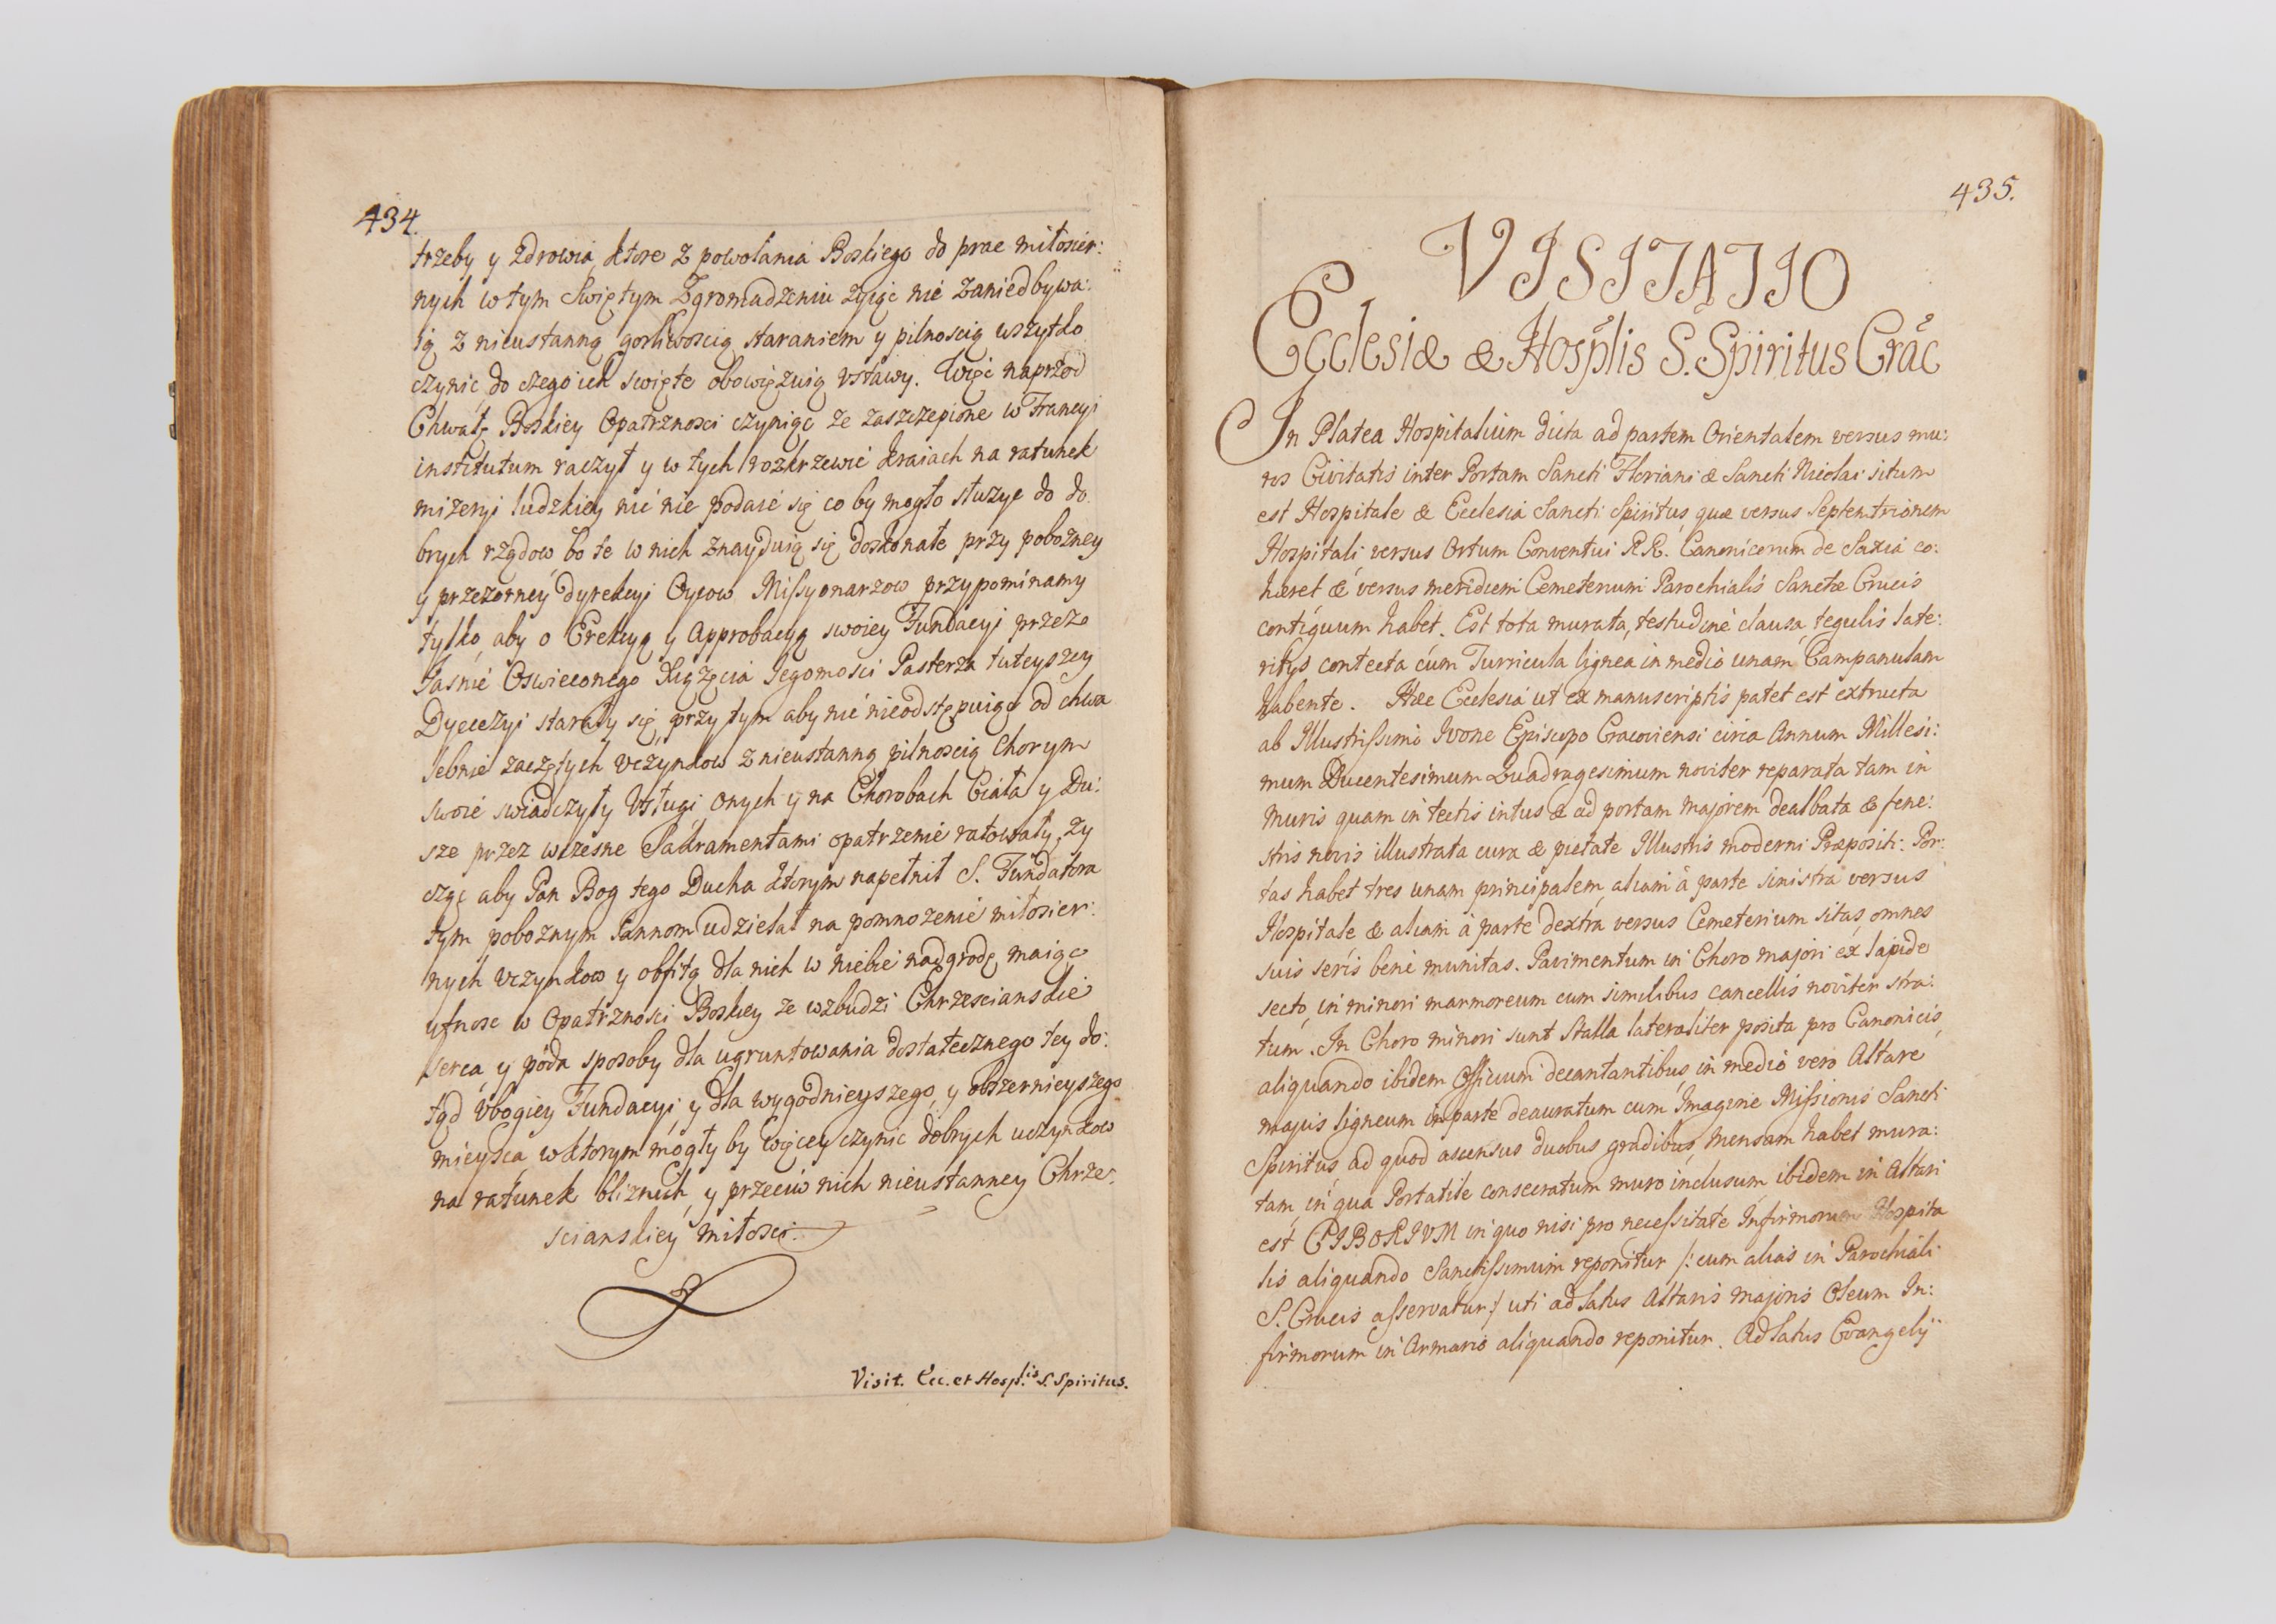 434.
trzeby y zdrowia, ktore z powołania Boskiego do prac miłosier:
nych w tym Swiętym Zgromadzeniu żyiąc nie zaniedbywa:
ią z nieustanną gorliwoscią staraniem y pilnoscią wszytko
czynic, do czego ich swięte obowięzuią vstawy. Więc naprzod
Chwałę Boskiey Opatrznosci czyniąc ze zaszczepione w Francyi
institutum raczył y w tych rozkrzewić kraiach na ratunek
mizeryi ludzkiey nic nie podaie się co by mogło słuzyc do do
brych rządow, bo te w nich znayduią się doskonałe przy pobozney
y przezorney dyrekcyi Oycow Missyonarzow przypominamy
tylko, aby o Erekcyą y Approbacyą swoiey Fundacyi przeze
Iasnie Oswieconego Xiążęcia Iegomosci Pasterza tuteyszey
Dyecezyi starały się, przy tym aby nic nieodstępuiąc od chwa
lebnie zaczętych vczynkow z nieustanną pilnoscią Chorym
swoie swiadczyły Vsługi onych y na Chorobach Ciała y Du:
sze przez wczesne Sakramentami opatrzenie ratowały, zy
cząc aby Pan Bog tego Ducha ktorym napełnił S. Fundatora
tym poboznym Pannom udzielał na pomnozenie miłosier:
nych vczynkow y obfitą dla nich w niebie nadgrodę maiąc
ufnosc w Opatrznosci Boskiey ze wzbudzi Chrzescianskie
serca y poda sposoby dla ugruntowania dostatecznego tey do:
tąd Vbogiey Fundacyi y dla wygodnieyszego, y obszernieyszego
mieysca, w ktorym mogły by więcey czynic dobrych uczynkow
na ratunek bliznich, y przeciw nich nieustanney Chrze:
scianskiey miłosci.
Visit. Ecc. et Hosp.lis S. Spiritus.
435.
VISITATIO
Ecclesiæ & Hosplis S. Spiritus Crac
In Platea Hospitalium dicta ad partem Orientalem versus mu:
ros Civitatis inter Portam Sancti Floriani & Sancti Nicolai situm
est Hospitale & Ecclesia Sancti Spiritus, quæ versus Septemtrionem
Hospitali, versus Ortum Conventui RR. Canonicorum de Saxia co:
hæret & versus meridiem Cemeterium Parochialis Sanctæ Crucis
contiguum habet. Est tota murata, testudine clausa, tegulis late:
ritys contecta cum Turricula lignea in medio unam Campanulam
habente. Hæc Ecclesia ut ex manuscriptis patet est extructa
ab Illustrissimo Ivone Episcopo Cracoviensi circa Annum Millesi:
mum Ducentesimum Quadragesimum noviter reparata tam in
muris quam in tectis intus & ad portam majorem dealbata & fene:
stris novis illustrata cura & pietate Illustris moderni Præpositi. Por:
tas habet tres unam principalem, aliam à parte sinistra versus
Hospitale & aliam à parte dextra versus Cemeterium sitas, omnes
suis seris bene munitas. Pavimentum in Choro majori ex lapide
secto, in minori marmoreum cum similibus cancellis noviter stra:
tum. In Choro minori sunt Stalla lateraliter posita pro Canonicis,
aliquando ibidem Officium decantantibus, in medio vero Altare
majus ligneum in parte deauratum cum Imagine Missionis Sancti
Spiritus, ad quod ascensus duobus gradibus, Mensam habet mura:
tam, in qua Portatile consecratum muro inclusum, ibidem in Altari
est CIBORIVM in quo nisi pro necessitate Infirmorum Hospita
lis aliquando Sanctissimum reponitur /: cum alias in Parochiali
S. Crucis asservatur :/ uti ad latus Altaris majoris Oleum In:
firmorum in Armario aliquando reponitur. Ad latus Evangelij